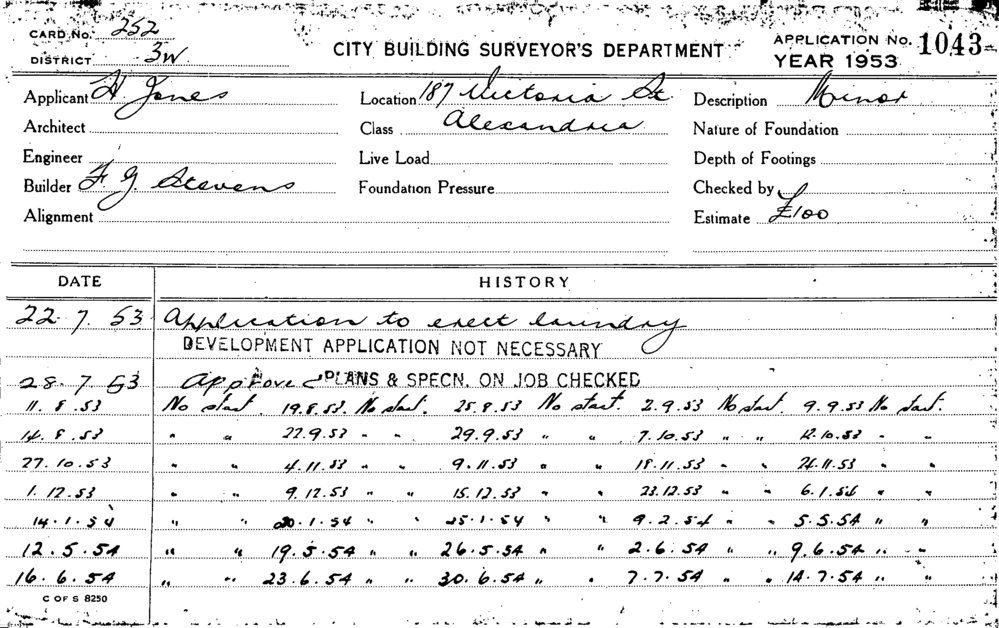 CARD No. 252
DISTRICT 3W
CITY BUILDING SURVEYOR'S DEPARTMENT
APPLICATION No. 1043
YEAR 1953
Applicant H Jones
Location 187 Victoria St
Description Minor
Architect
Class Alexandria
Nature of Foundation
Engineer
Live Load
Depth of Footings
Builder F. G. Stevens
Foundation Pressure
Checked by
Alignment
Estimate £100
DATE HISTORY
22. 7. 53 Application to erect laundry
DEVELOPMENT APPLICATION NOT NECESSARY
28. 7. 53 Approved PLANS & SPECN. ON JOB CHECKED
11. 8. 53 No start. 19.8.53. No start. 25.8.53 No start. 2.9.53 No start. 9.9.53 No start.
14. 9. 53 " " 22.9.53 " " 29.9.53 " " 7.10.53 " " 12.10.53 " "
27.10.53 " " 4.11.53 " " 9.11.53 " " 18.11.53 " " 24.11.53 " "
1.12.53 " " 9.12.53 " " 15.12.53 " " 23.12.53 " " 6.1.54 " "
14.1.54 " " 20.1.54 " " 25.1.54 " " 9.2.54 " " 5.5.54 " "
12.5.54 " " 19.5.54 " " 26.5.54 " " 2.6.54 " " 9.6.54 " "
16.6.54 " " 23.6.54 " " 30.6.54 " " 7.7.54 " " 14.7.54 " "
C OF S 8250